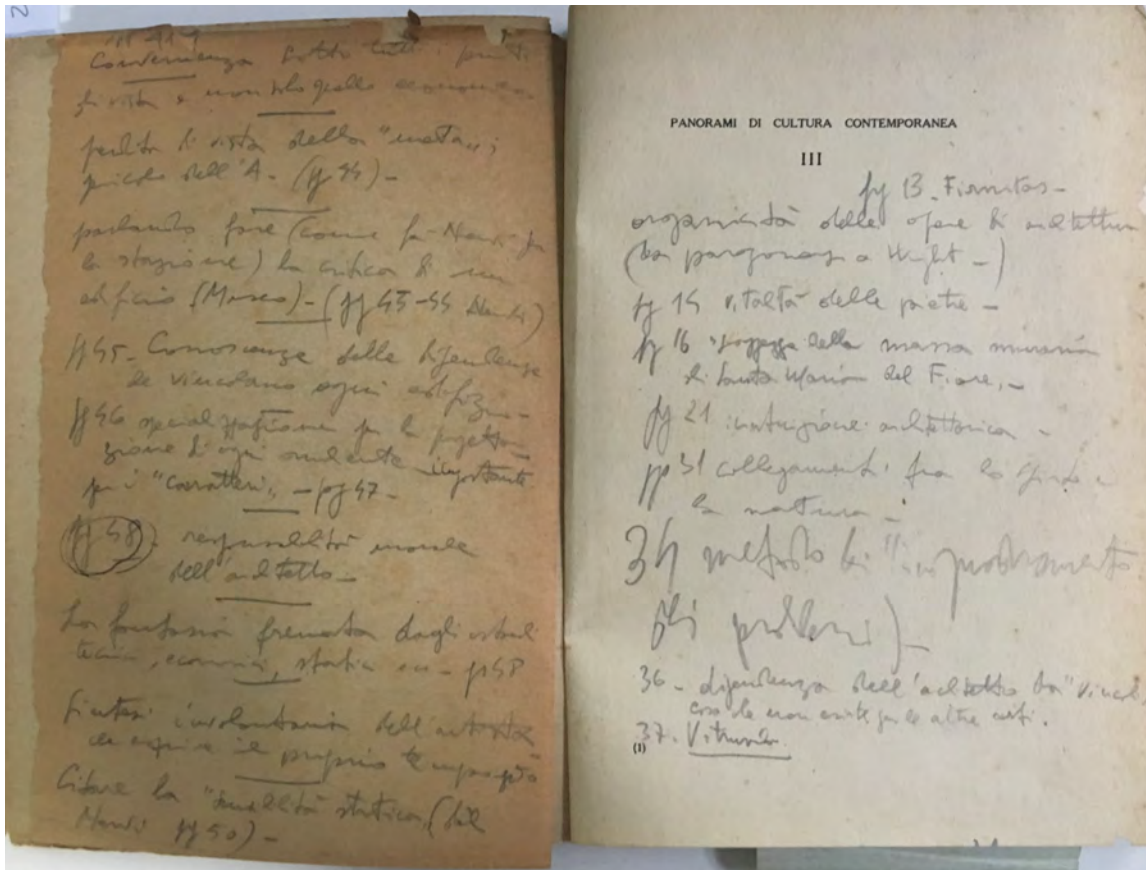 Convenienza sotto tutti i punti
di vista e non solo quello economico
perdita di vista della "meta";
pericolo dell'A. (pg 44) -
parlando fare (come fa Nervi per
la stazione) la critica di un
edificio (Museo) - (pg 43-44 Nervi)
pg 45 - Conoscenza delle dipendenze
che vincolano ogni edificio -
pg 46 specializzazione per la progetta-
zione d'ogni ambiente importante
per i "caratteri" - pg 47 -
pg 48) - responsabilità morale
dell'architetto -
La fantasia frenata dagli ostacoli
tecnici, economici, statici ecc - pg 48
Sintesi involontaria dell'artista
che esprime il proprio tempo
Citare la "sensibilità statica" (dal
Nervi pg 50) -
PANORAMI DI CULTURA CONTEMPORANEA
III
pg 13. Firmitas -
organicità delle opere di architettura
(da paragonarsi a Wright -)
pg 14 vitalità delle pietre -
pg 16 della massa muraria
di Santa Maria del Fiore. -
pg 21 intuizione architettonica -
pp 31 collegamenti fra lo spirito e
la natura -
34 metodo di "impostamento
dei problemi) -
36 - dipendenza dell'architetto da "vincoli
cosa che non esiste per le altre arti.
37. Vitruvio
(1)